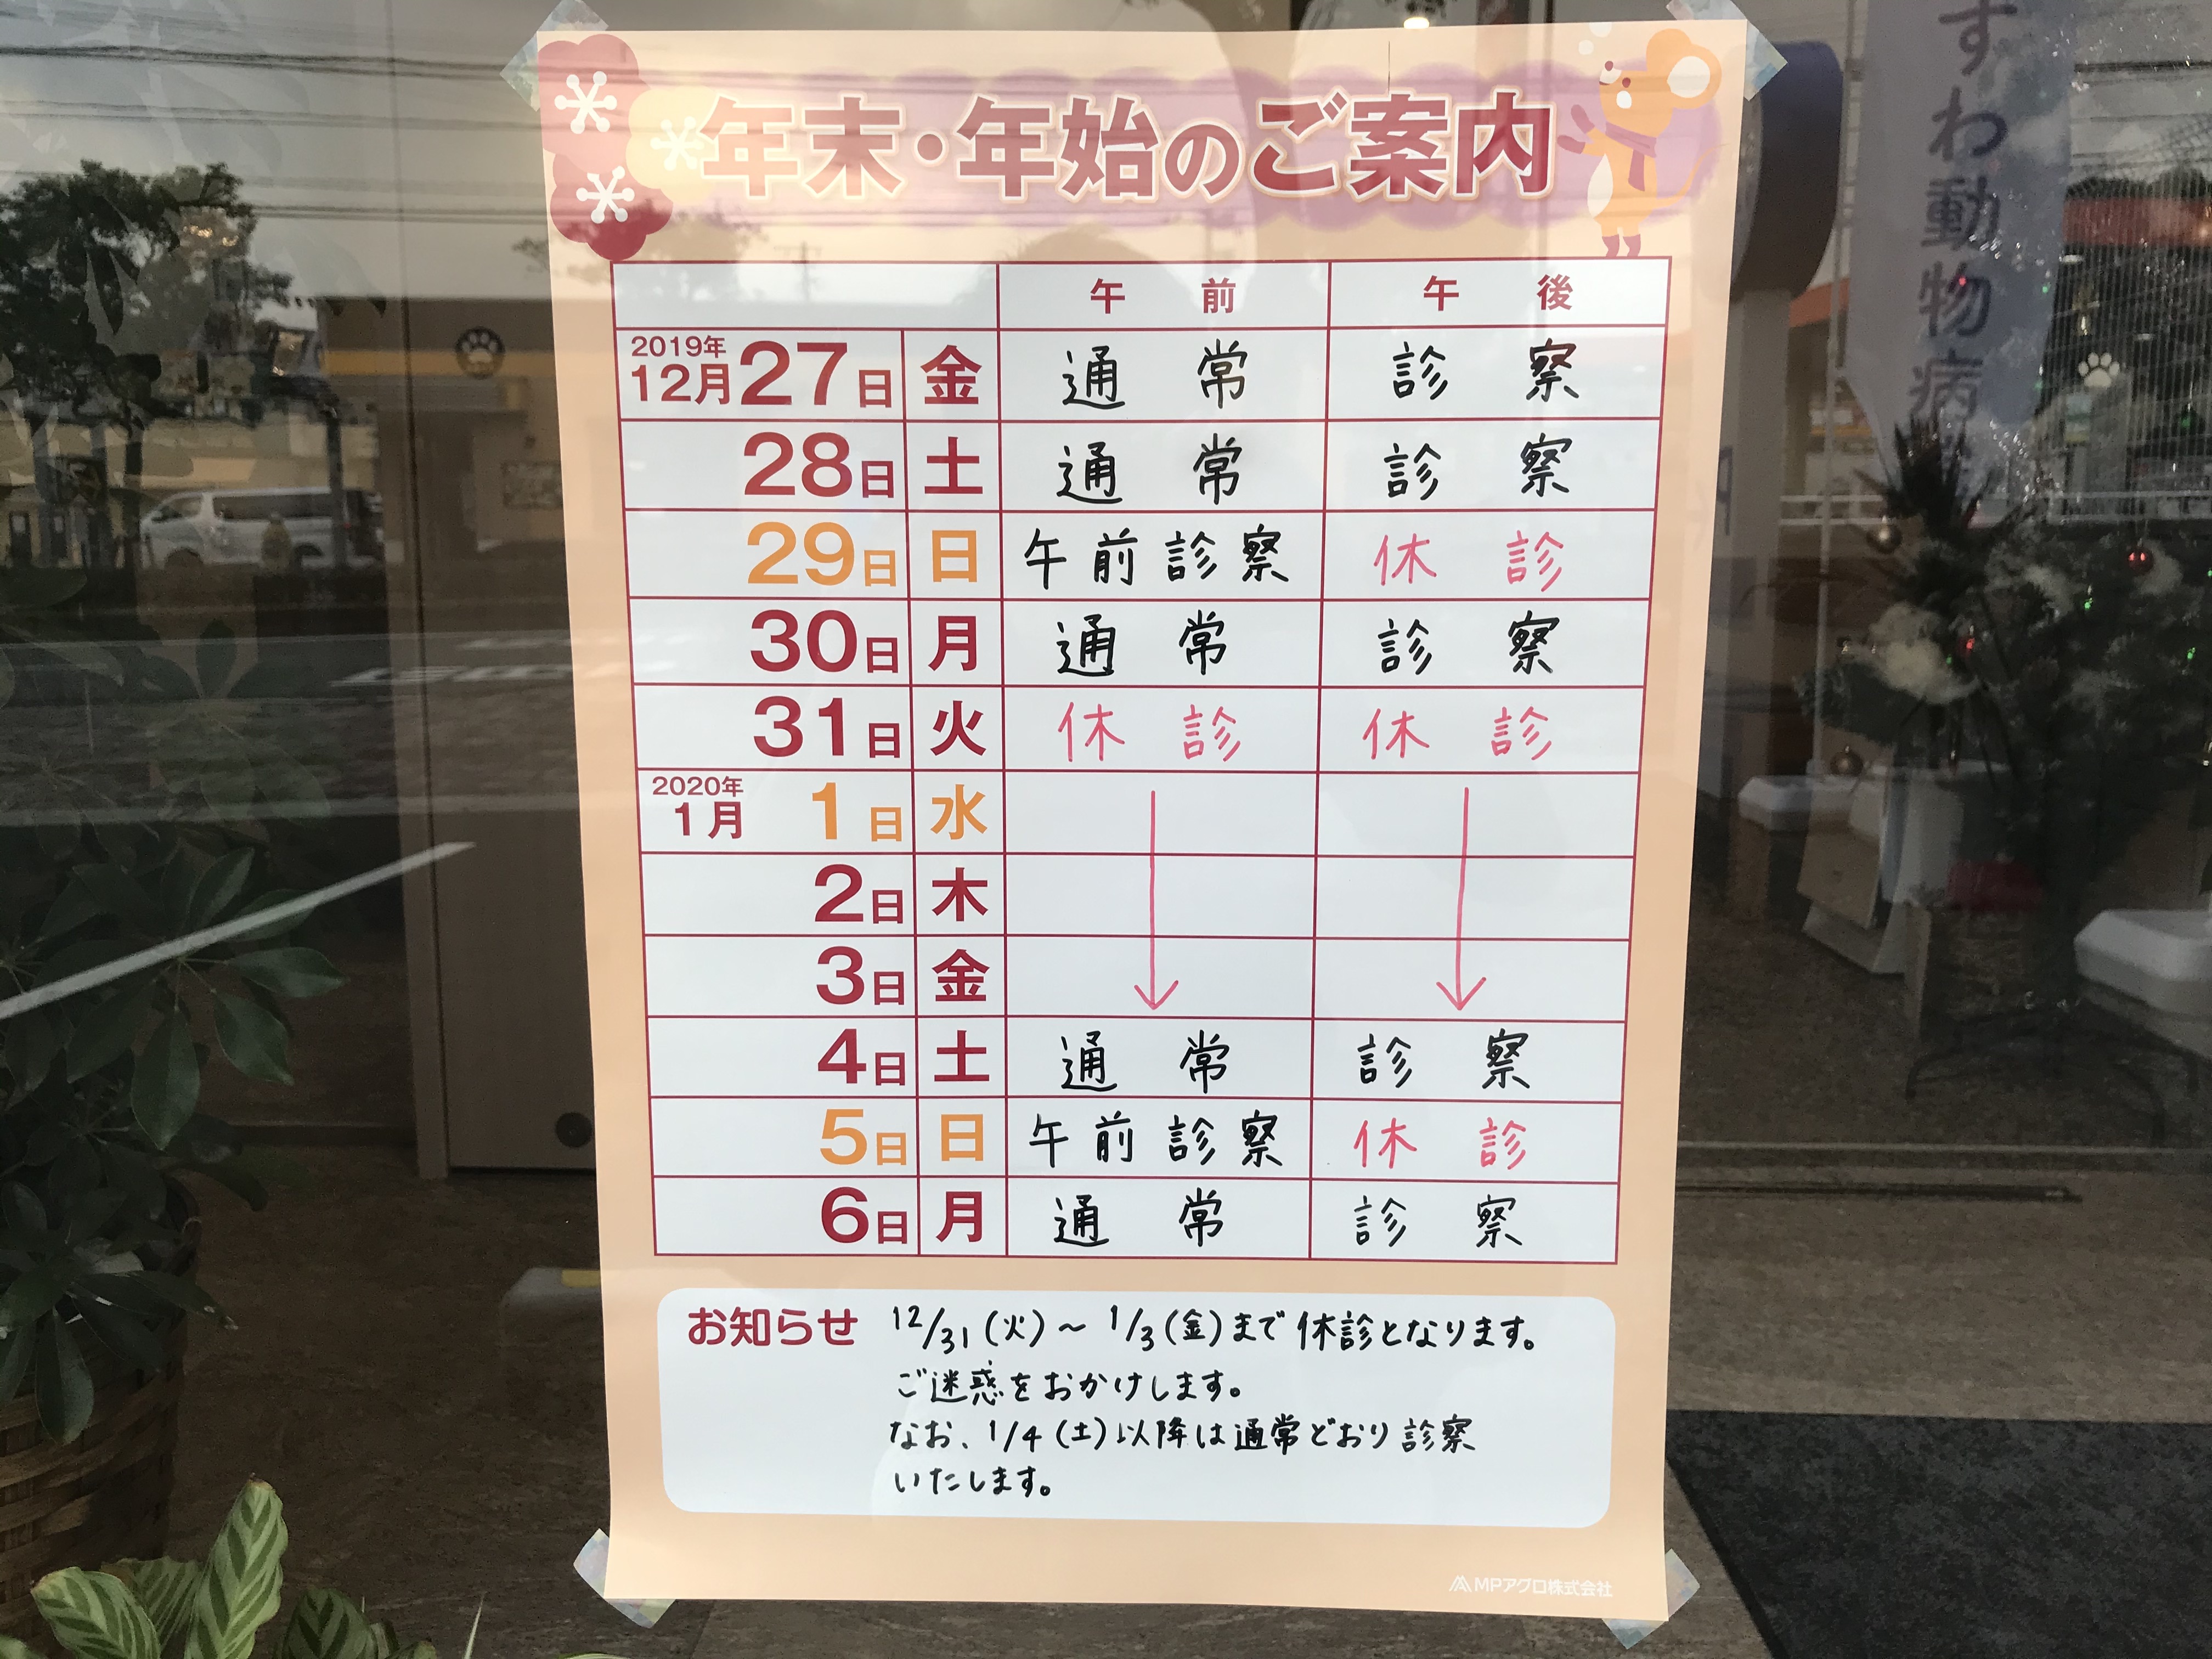 年末・年始のご案内
午前 午後
2019年
12月27日 金 通常 診察
28日 土 通常 診察
29日 日 午前診察 休診
30日 月 通常 診察
31日 火 休診 休診
2020年
1月 1日 水
2日 木
3日 金
4日 土 通常 診察
5日 日 午前診察 休診
6日 月 通常 診察
お知らせ 12/31(火)～1/3(金)まで休診となります。
ご迷惑をおかけします。
なお、1/4(土)以降は通常どおり診察
いたします。
MPアグロ株式会社
すわ動物病